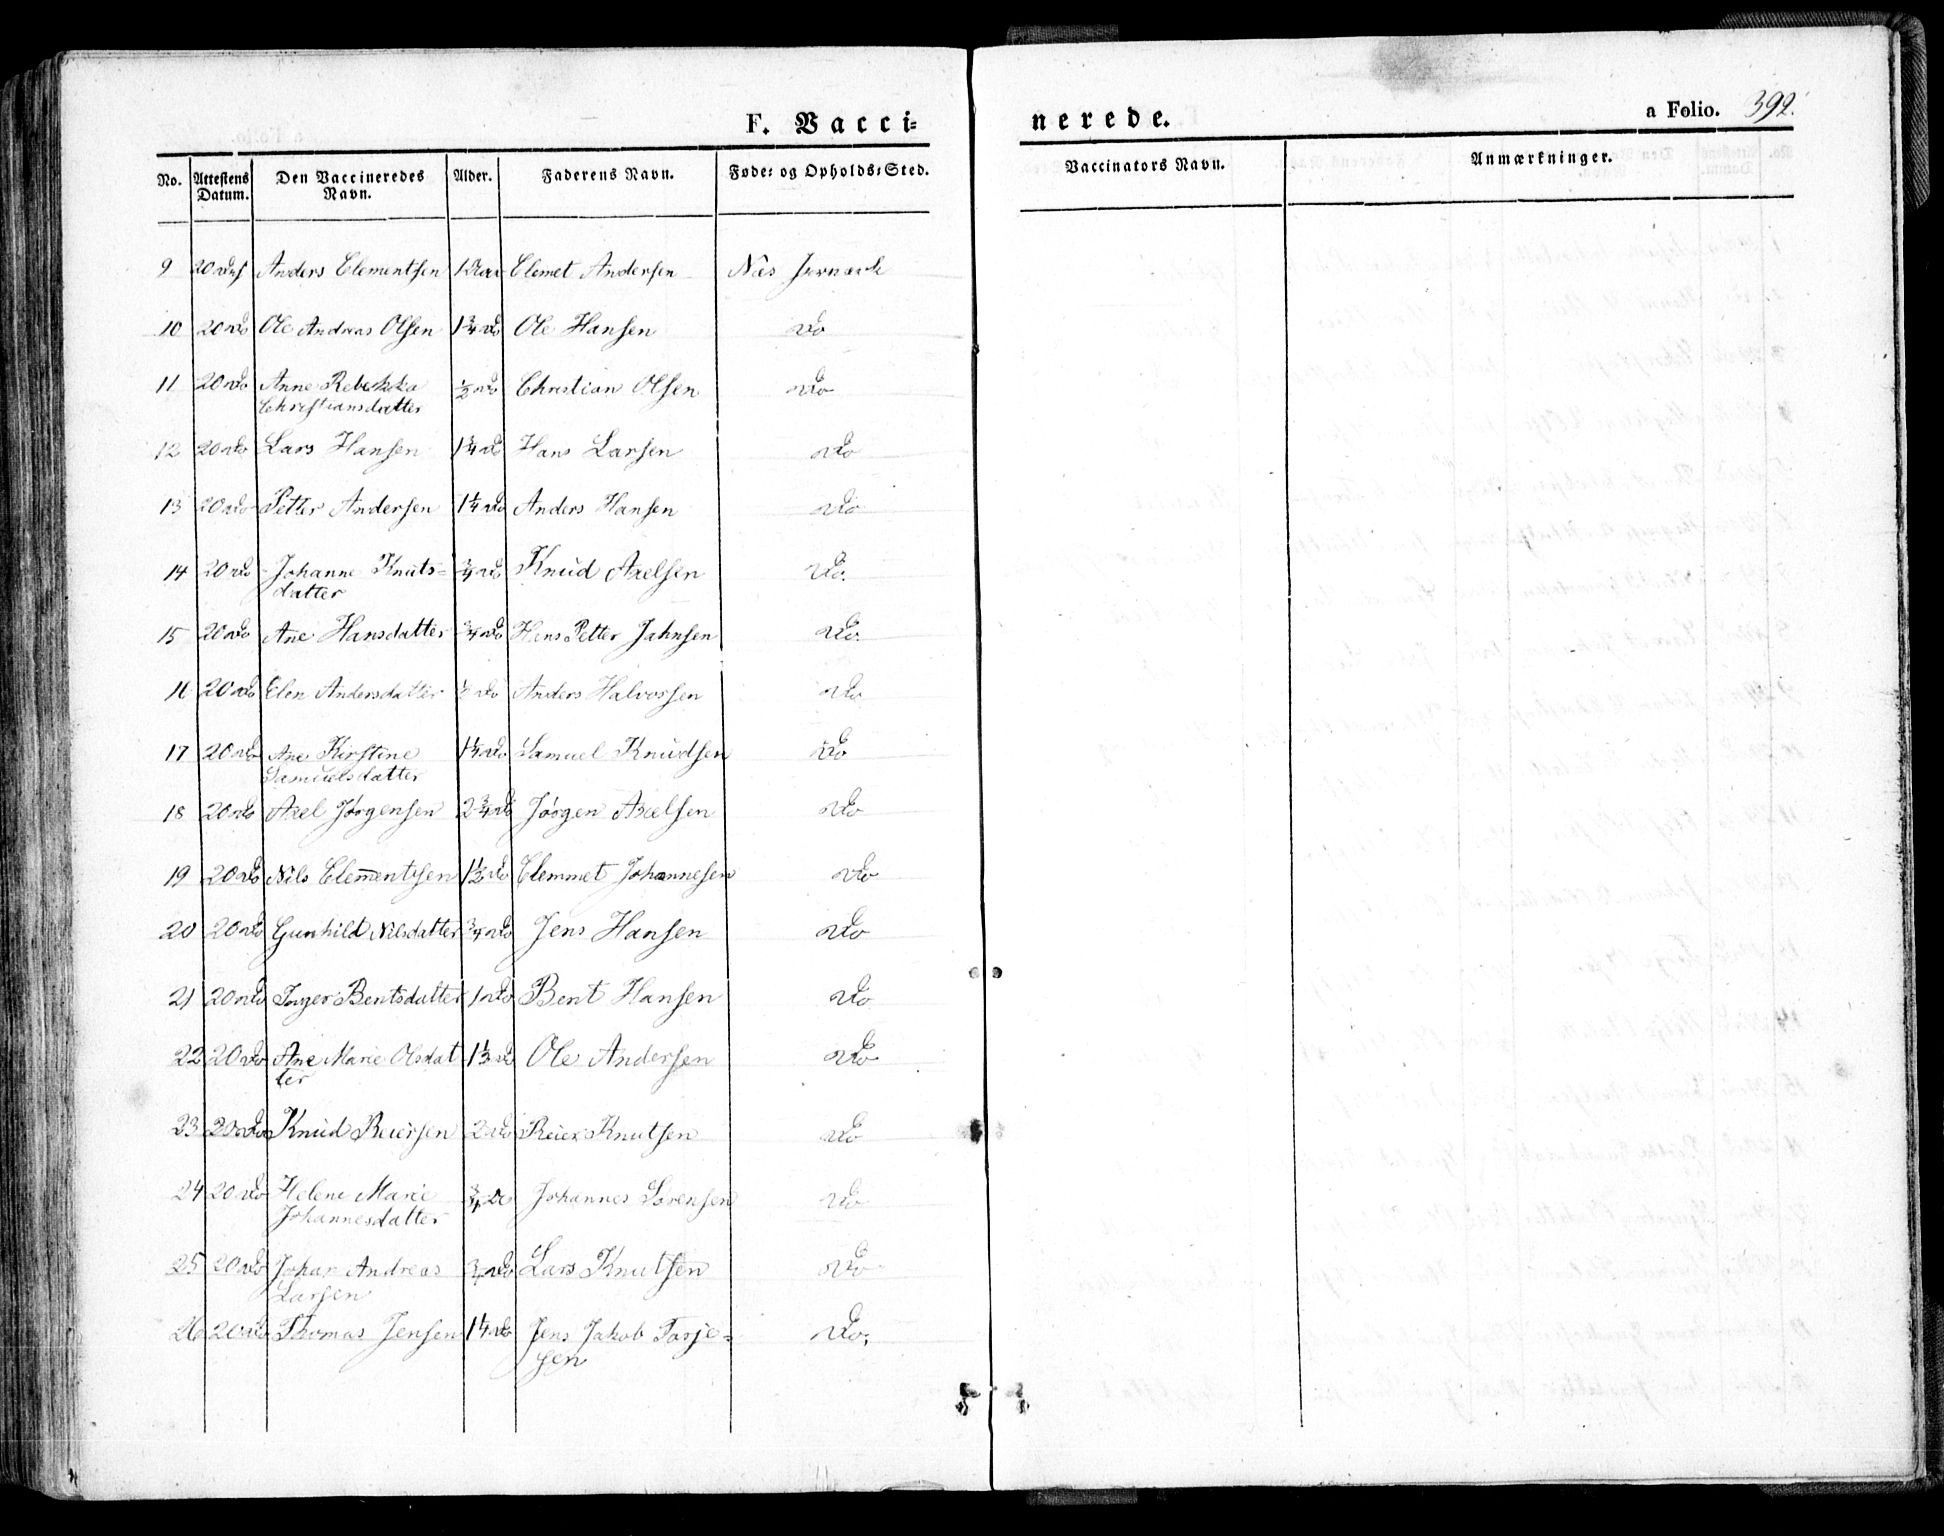 F. Vacci-
nerede.
a Folio. 392.
No. Attestens Datum. Den Vaccineredes Navn. Alder. Faderens Navn. Føde- og Opholds-Sted. Vaccinators Navn. Anmærkninger.
9 20 Anders Clementsen 1 Clemet Andersen Næs Jernværk
10 20 do Ole Andreas Olsen 1 3/4 do Ole Hansen do
11 20 do Anne Rebekka 1/2 do Christian Olsen do
Christiansdatter
12 20 do Lars Hansen 1 3/4 do Hans Larsen do
13 20 do Petter Andersen 1 1/4 do Anders Hansen do
14 20 do Johanne Knuts- 3/4 do Knud Axelsen do.
datter
15 20 do Ane Hansdatter 3/4 do Hans Petter Jahnsen do.
16 20 do Elen Andersdatter do Anders Halvorsen do
17 20 do Ane Kirstine 1 1/4 do Samuel Knudsen do
Samuelsdatter
18 20 do Axel Jørgensen 2 3/4 do Jørgen Axelsen do
19 20 do Nils Clementsen 1 1/2 do Clemmet Johannesen do
20 20 do Gunhild Nilsdatter 3/4 do Jens Hansen do
21 20 do Inger Bentsdatter 1 do Bent Hansen do
22 20 do Ane Marie Olsdat 1 1/2 do Ole Andersen do
ter
23 20 do Knud Reiersen 2 do Reier Knutsen do
24 20 do Helene Marie 3/4 do Johannes Sørensen do
Johannesdatter
25 20 do Johan Andreas 3/4 do Lars Knutsen do
Larsen
26 20 do Thomas Jensen 1 1/4 do Jens Jakob Tarje-
sen do.